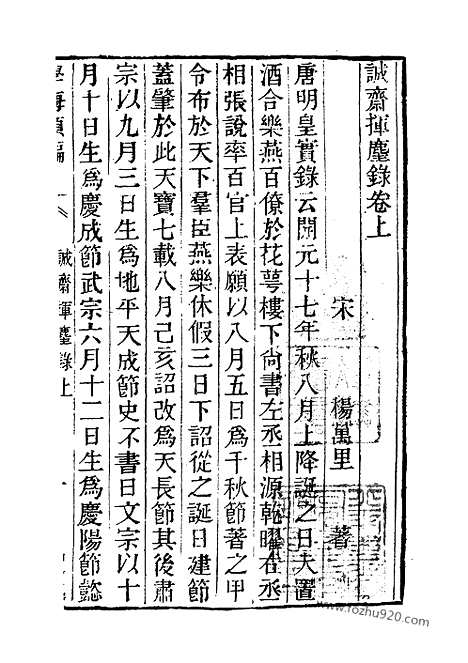 誠齋揮麈錄卷上
宋 楊萬里 著
唐明皇實錄云開元十七年秋八月上降誕之日大置
酒合樂燕百僚於花萼樓下尚書左丞相源乾曜右丞
相張說率百官上表願以八月五日為千秋節著之甲
令布於天下羣臣燕樂休假三日下詔從之誕日建節
蓋肇於此天寶七載八月己亥詔改為天長節其後肅
宗以九月三日生為地平天成節史不書日文宗以十
月十日生為慶成節武宗六月十二日生為慶陽節懿
學海類編 誠齋揮麈錄上 一
www.fozhu920.com